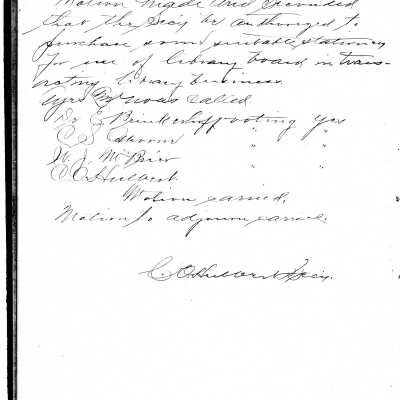 Motion made and seconded
that the Secy be authorized to
purchase some suitable stationery
for use of library board in trans-
acting library business.
Ayes & Noes called
Dr E Brinkerhoff voting yes
C S " "
W. J. McBrier " "
C O Hulbert
Motion carried.
Motion to adjourn carried.
C. O. Hulbert Secy.